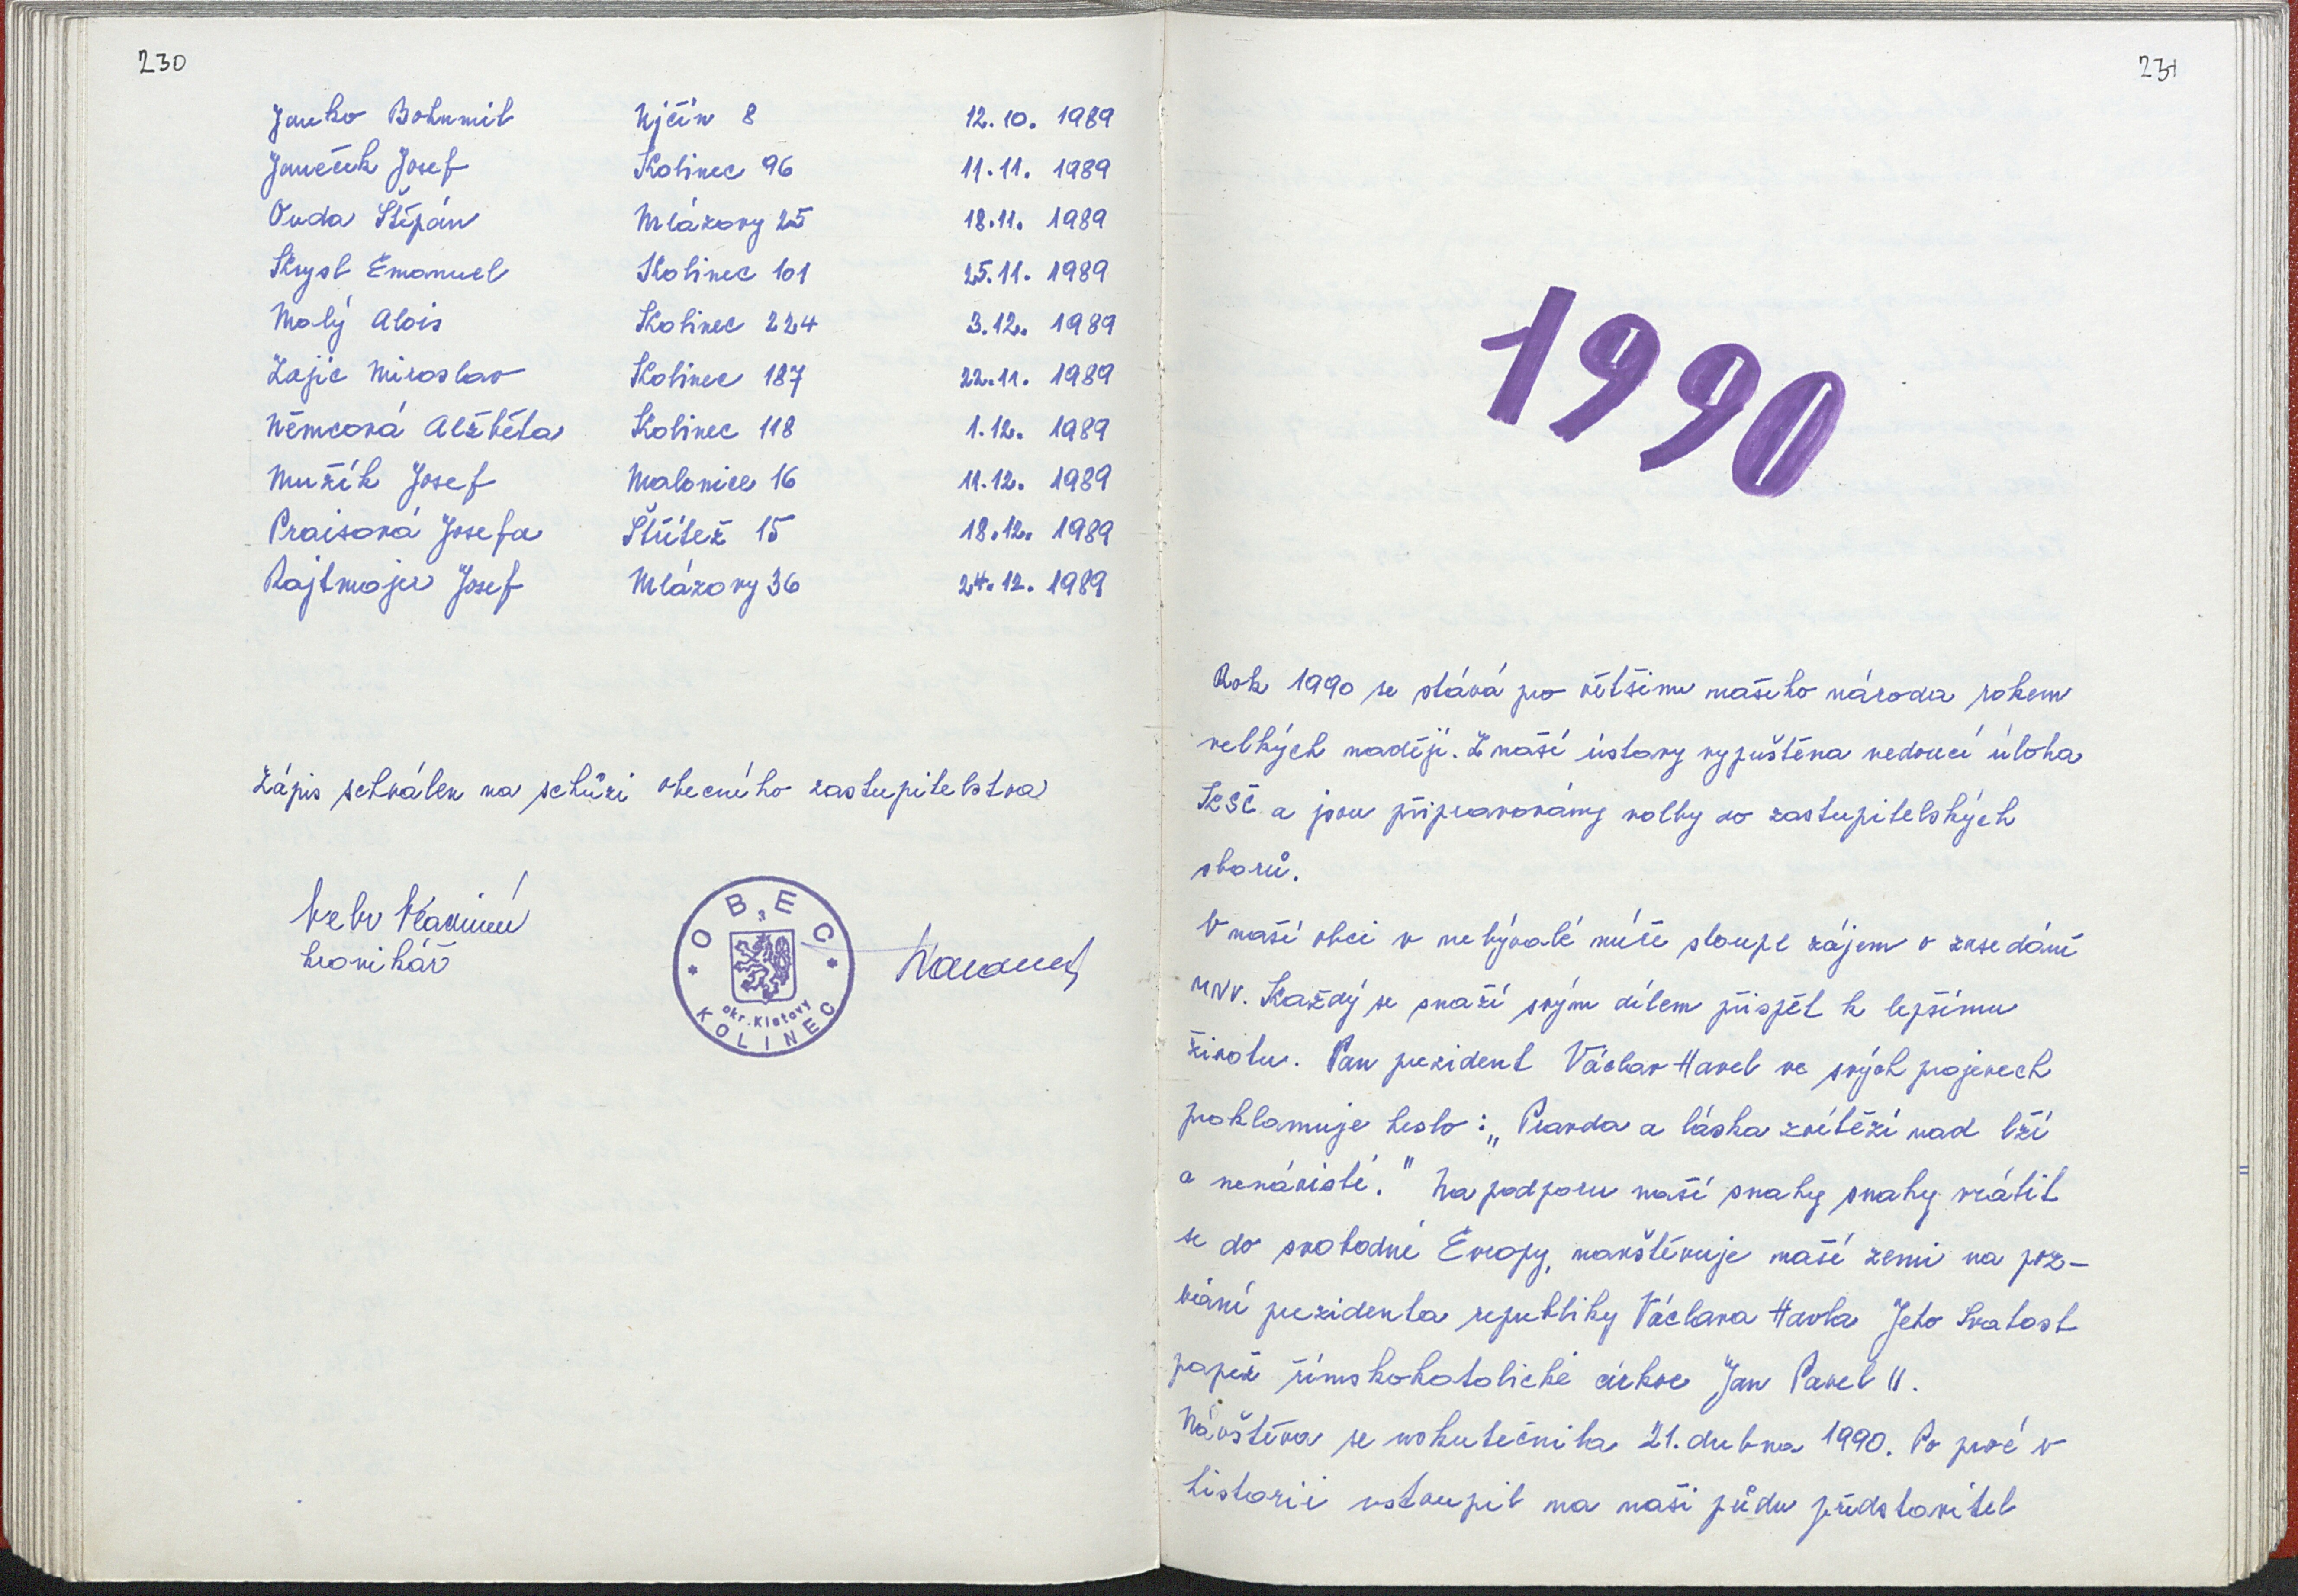 230
Janko Bohumil Ujčín 8 12.10. 1989
Janeček Josef Kolinec 96 11.11. 1989
Ouda Štěpán Mlázovy 25 18.11. 1989
Krysl Emanuel Kolinec 101 25.11. 1989
Malý Alois Kolinec 224 3.12. 1989
Zajíc Miroslav Kolinec 187 22.11. 1989
Němcová Alžběta Kolinec 118 1.12. 1989
Mužík Josef Malonice 16 11.12. 1989
Praisová Josefa Střítež 15 18.12. 1989
Rajtmajer Josef Mlázovy 36 24.12. 1989
Zápis schválen na schůzi obecního zastupitelstva
kronikář
OBEC
3
okr. Klatovy
KOLINEC
231
1990
Rok 1990 se stává pro většinu našeho národa rokem
velkých nadějí. Z naší ústavy vypuštěna vedoucí úloha
KSČ a jsou připravovány volby do zastupitelských
sborů.
V naší obci v nebývalé míře stoupl zájem o zasedání
MNV. Každý se snaží svým dílem přispět k lepšímu
životu. Pan prezident Václav Havel ve svých projevech
proklamuje heslo: „Pravda a láska zvítězí nad lží
a nenávistí." Na podporu naší snahy snahy vrátit
se do svobodné Evropy, navštěvuje naší zemi na poz-
vání prezidenta republiky Václava Havla Jeho Svatost
papež římskokatolické církve Jan Pavel II.
Návštěva se uskutečnila 21. dubna 1990. Po prvé v
historii vstoupil na naši půdu představitel